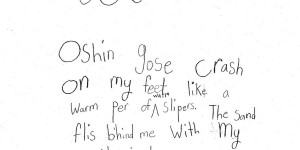 Oshin gose Crash
on my feet like a
warm per of water slipers. The Sand
flis bhind me With My